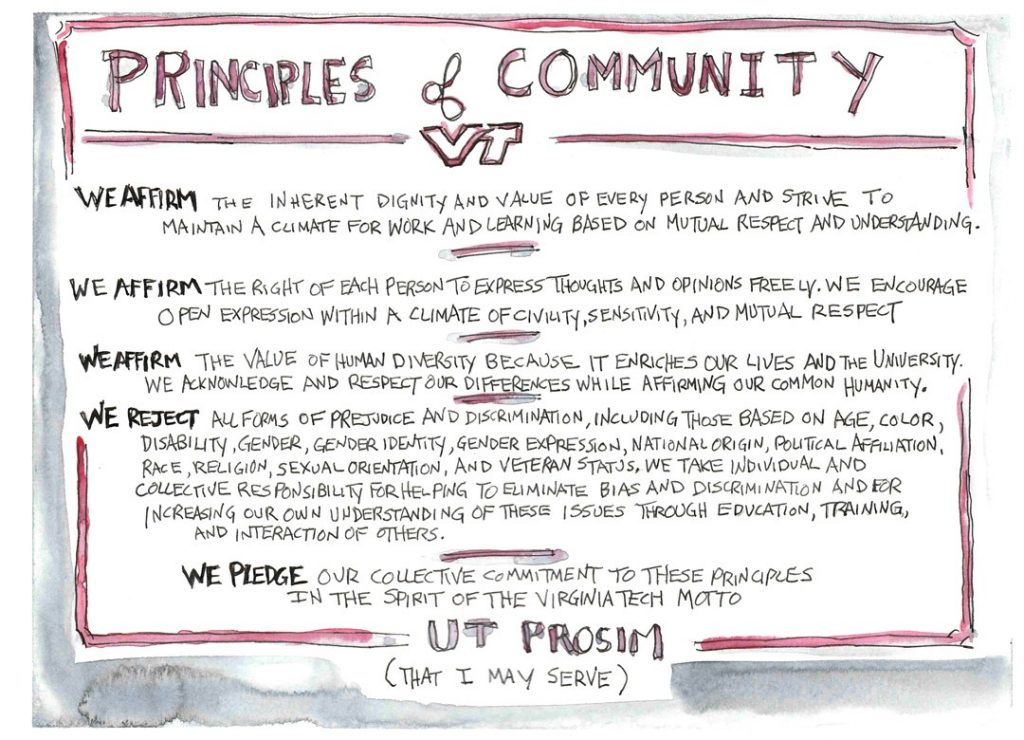 PRINCIPLES of COMMUNITY
VT
WE AFFIRM THE INHERENT DIGNITY AND VALUE OF EVERY PERSON AND STRIVE TO
MAINTAIN A CLIMATE FOR WORK AND LEARNING BASED ON MUTUAL RESPECT AND UNDERSTANDING.
WE AFFIRM THE RIGHT OF EACH PERSON TO EXPRESS THOUGHTS AND OPINIONS FREELY. WE ENCOURAGE
OPEN EXPRESSION WITHIN A CLIMATE OF CIVILITY, SENSITIVITY, AND MUTUAL RESPECT
WE AFFIRM THE VALUE OF HUMAN DIVERSITY BECAUSE IT ENRICHES OUR LIVES AND THE UNIVERSITY.
WE ACKNOWLEDGE AND RESPECT OUR DIFFERENCES WHILE AFFIRMING OUR COMMON HUMANITY.
WE REJECT ALL FORMS OF PREJUDICE AND DISCRIMINATION, INCLUDING THOSE BASED ON AGE, COLOR,
DISABILITY, GENDER, GENDER IDENTITY, GENDER EXPRESSION, NATIONAL ORIGIN, POLITICAL AFFILIATION,
RACE, RELIGION, SEXUAL ORIENTATION, AND VETERAN STATUS. WE TAKE INDIVIDUAL AND
COLLECTIVE RESPONSIBILITY FOR HELPING TO ELIMINATE BIAS AND DISCRIMINATION AND FOR
INCREASING OUR OWN UNDERSTANDING OF THESE ISSUES THROUGH EDUCATION, TRAINING,
AND INTERACTION OF OTHERS.
WE PLEDGE OUR COLLECTIVE COMMITMENT TO THESE PRINCIPLES
IN THE SPIRIT OF THE VIRGINIA TECH MOTTO
UT PROSIM
(THAT I MAY SERVE)